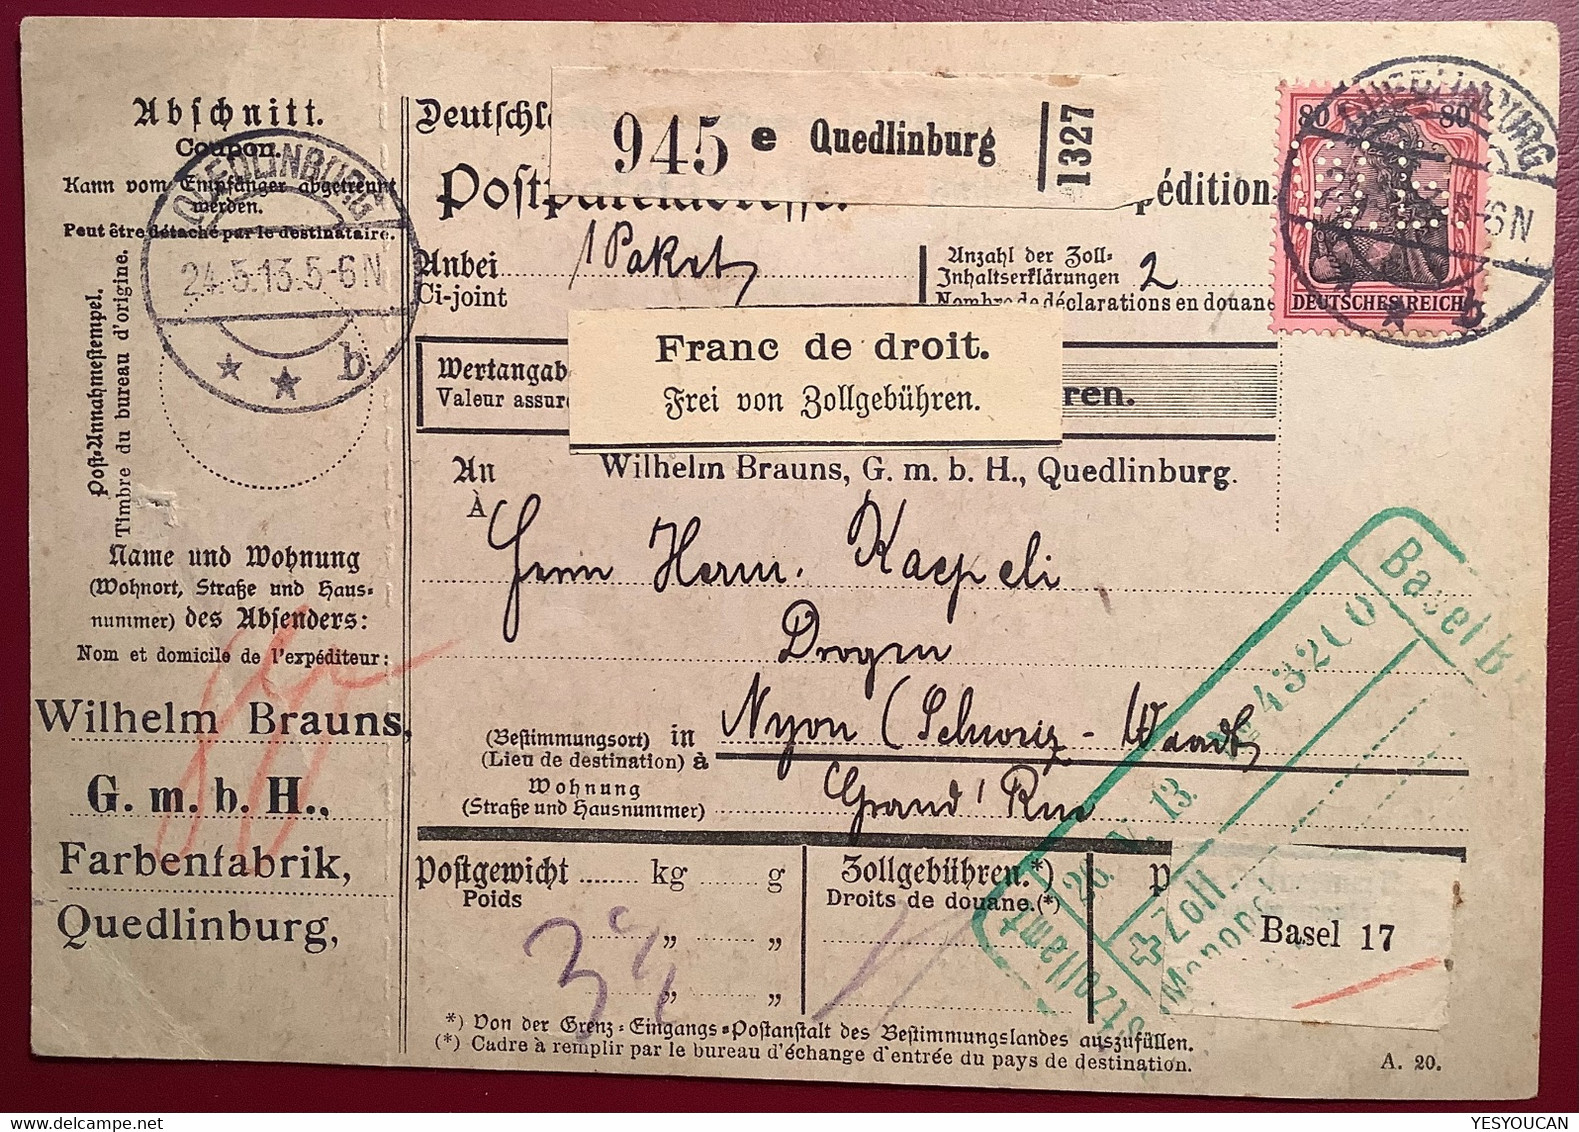 Abschnitt.
Coupon.
Kann vom Empfänger abgetrennt
werden.
Peut être détaché par le destinataire.
QUEDLINBURG
24.5.13.5-6N
* * b
Post-Annahmestempel.
Timbre du bureau d'origine.
Name und Wohnung
(Wohnort, Straße und Haus-
nummer) des Absenders:
Nom et domicile de l'expéditeur:
Wilhelm Brauns,
G. m. b. H.,
Farbenfabrik,
Quedlinburg,
945 e Quedlinburg 1327
Deutschl
Postpaketadresse. pédition
Anbei 1 Paket
Ci-joint
Anzahl der Zoll-
Inhaltserklärungen 2
Nombre de déclarations en douane
80 80
DEUTSCHES REICH
QUEDLINBURG
5-6N
* * b
Franc de droit.
Frei von Zollgebühren.
Wertangab
Valeur assur
ren.
An Wilhelm Brauns, G. m. b. H., Quedlinburg.
À
Herrn Herm. Kaepeli
Drogen
(Bestimmungsort) in Nyon (Schweiz - Waadt)
(Lieu de destination) à
Wohnung
(Straße und Hausnummer) Grand' Rue
Basel B
No 43200
26. V. 13.
stzollamt
Zoll
Monopo
Postgewicht kg g
Poids
" "
" "
Zollgebühren.*)
Droits de douane.(*)
P
Basel 17
*) Von der Grenz-Eingangs-Postanstalt des Bestimmungslandes auszufüllen.
(*) Cadre à remplir par le bureau d'échange d'entrée du pays de destination.
A. 20.
YESYOUCAN